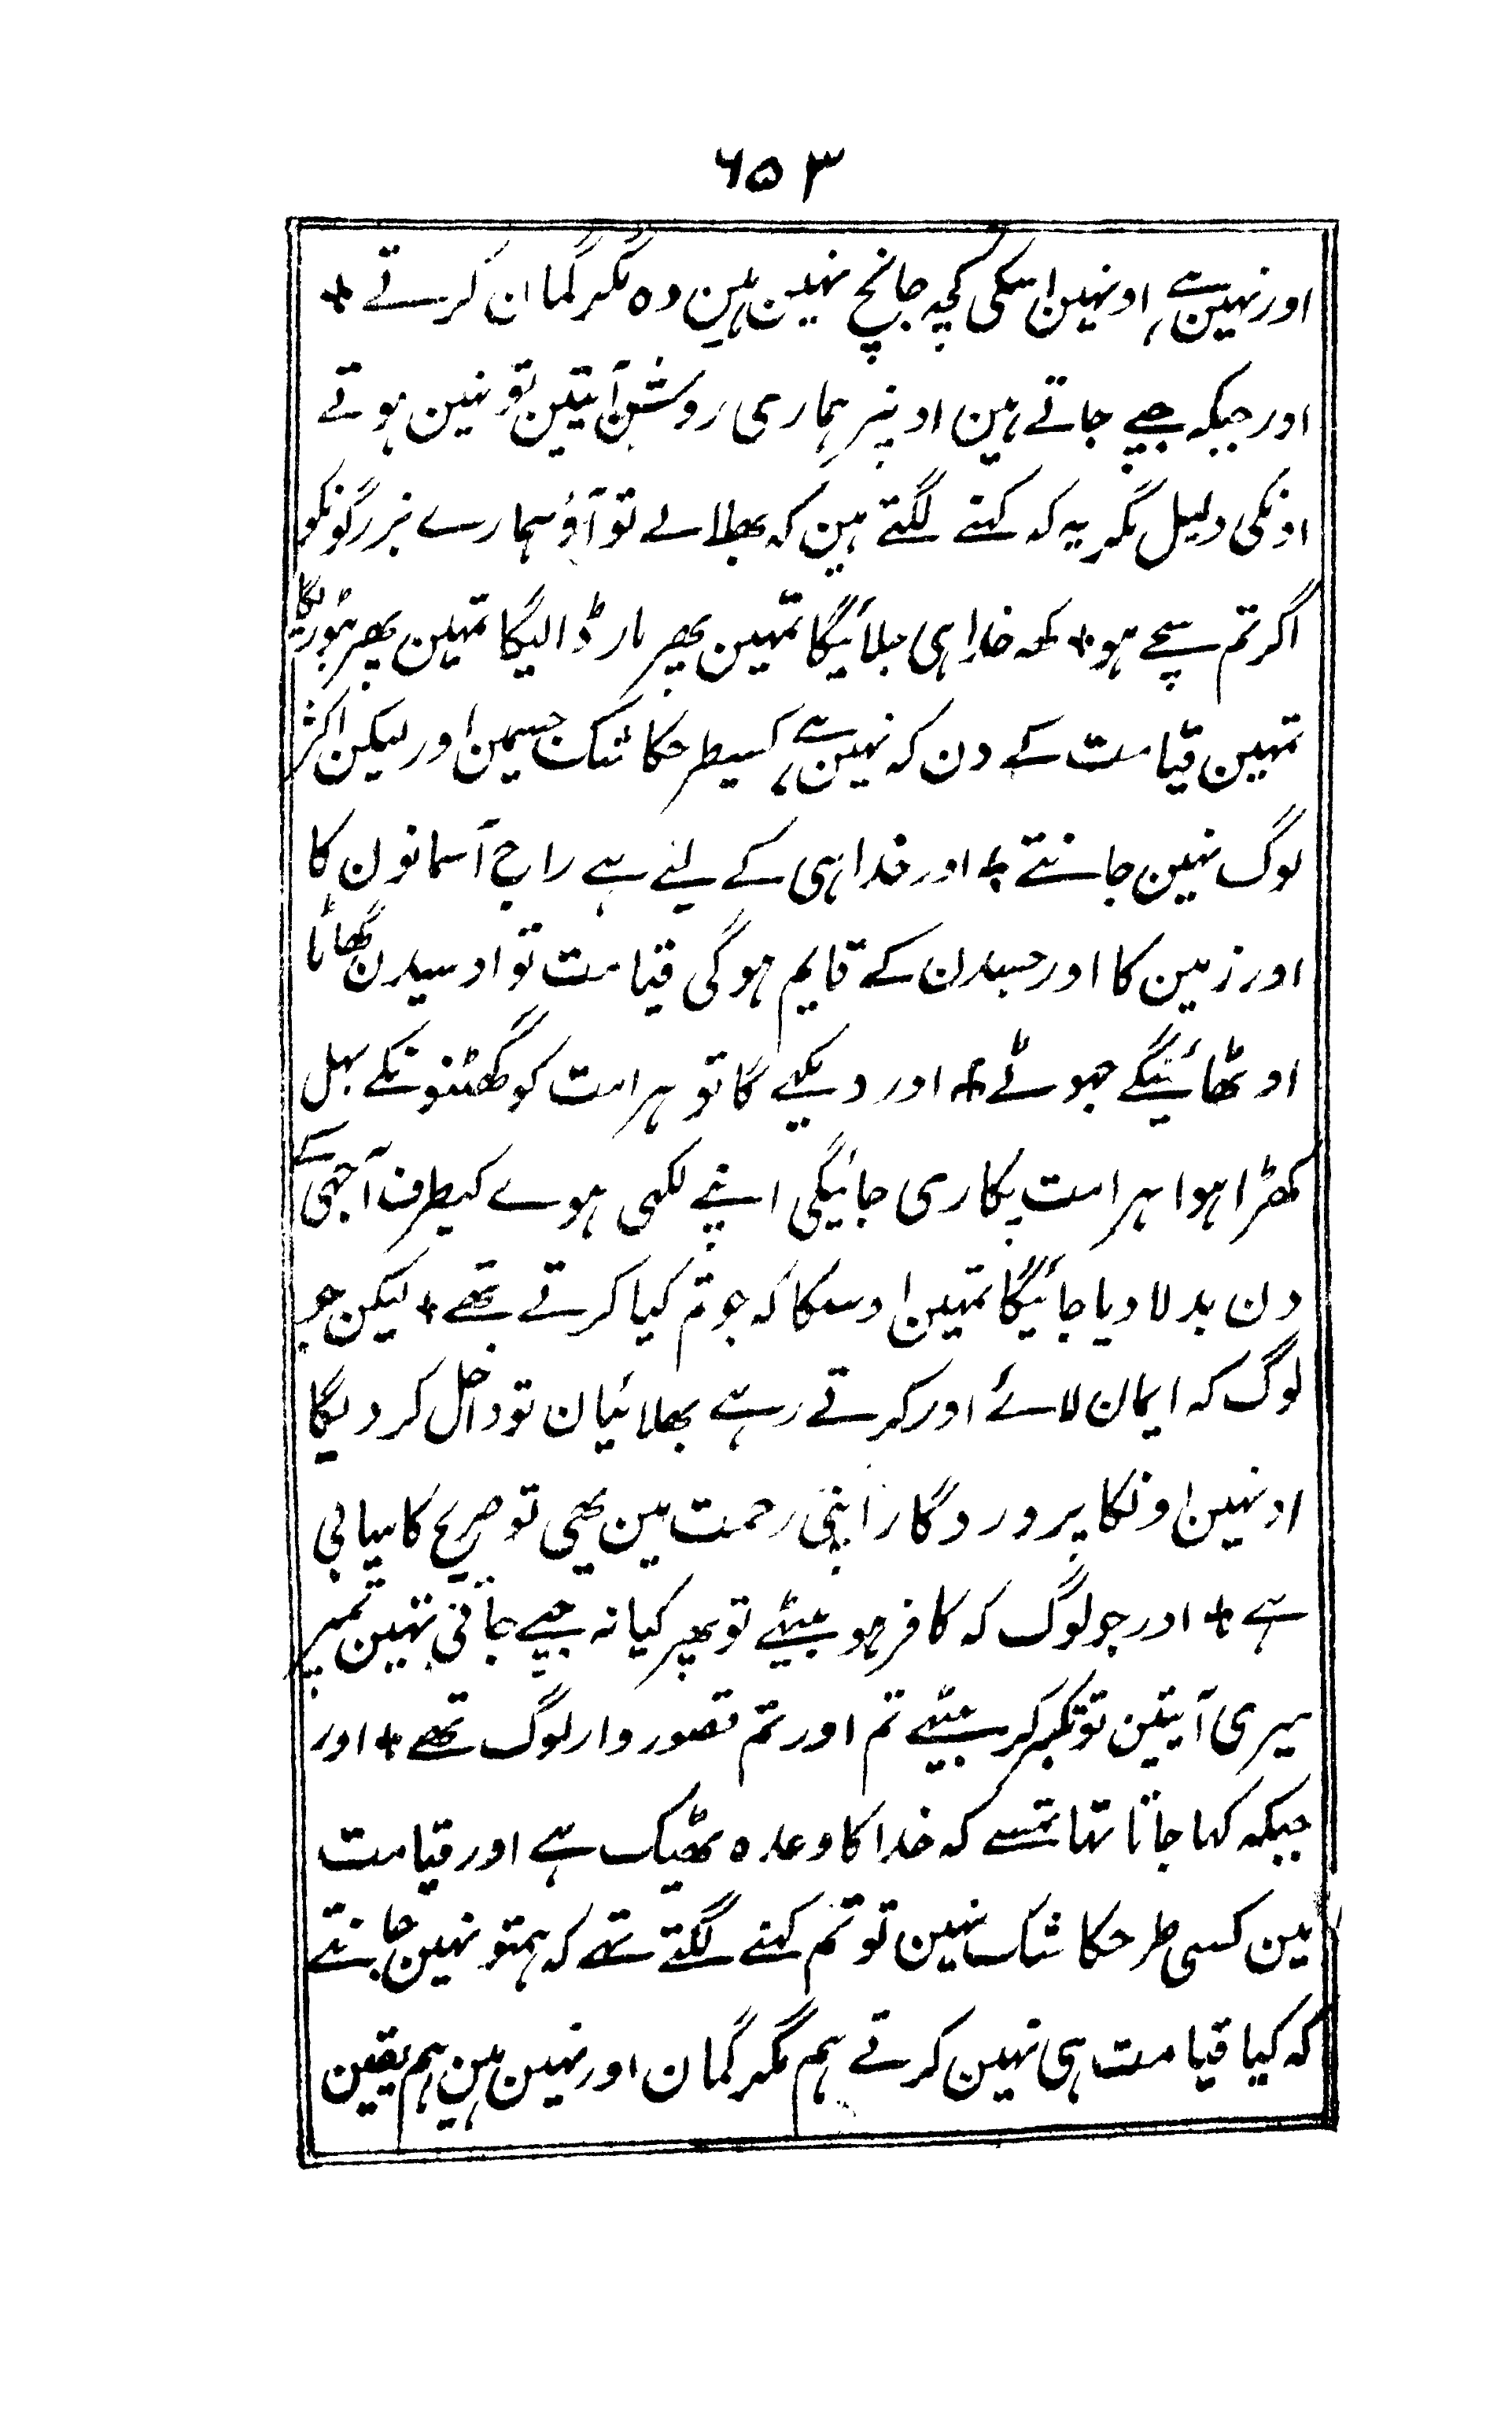 ۶۵۳
اور نہین ہے اونہین اسکی کچہ جانچ نہین ہین وہ مگر گمان کرتے +
اور جبکہ جپے جاتے ہین اونپر ہماری روشن آیتین تو نہین ہوتے
اونکی دلیل مگر یہ کہ کہنے لگتے ہین کہ بھلا لے تو آؤ ہمارے بزرگونکو
اگر تم سچے ہو + کہہ خدا ہی جلائیگا تمہین پھر مار ڈالیگا تمہین پھر بٹوریگا
تمہین قیامت کے دن کہ نہین ہے کسیطرحکا شک جسمین اور لیکن اکثر
لوگ نہین جانتے + اور خدا ہی کے لیے ہے راج آسمانون کا
اور زمین کا اور جسدن کے قایم ہوگی قیامت تو اوسیدن گھاٹا
اوٹھائینگے جہوٹے + اور دیکہے گا تو ہر امت کو گھٹنونکے بہل
کھڑا ہوا ہر امت پکاری جائیگی اپنے لکہی ہوے کیطرف آجہی کے
دن بدلا دیا جائیگا تمہین اوسکا کہ جو تم کیا کرتے تھے + لیکن جو
لوگ کہ ایمان لائے اور کرتے رہے بھلائیان تو داخل کر دیگا
اونہین اونکا پروردگار اپنی رحمت مین یہی تو صریح کامیابی
ہے + اور جو لوگ کہ کافر ہو بیٹھے تو پھر کیا نہ جپے جاتی تہین تمپر
میری آیتین تو تکبر کر بیٹھے تم اور تم قصوروار لوگ تھے + اور
جبکہ کہا جاتا تہا تمسے کہ خدا کا وعدہ ٹھیک ہے اور قیامت
مین کسی طرحکا شک نہین تو تم کہنے لگتے تہے کہ ہمتو نہین جانتے
کہ کیا قیامت ہی نہین کرتے ہم مگر گمان اور نہین ہین ہم یقین